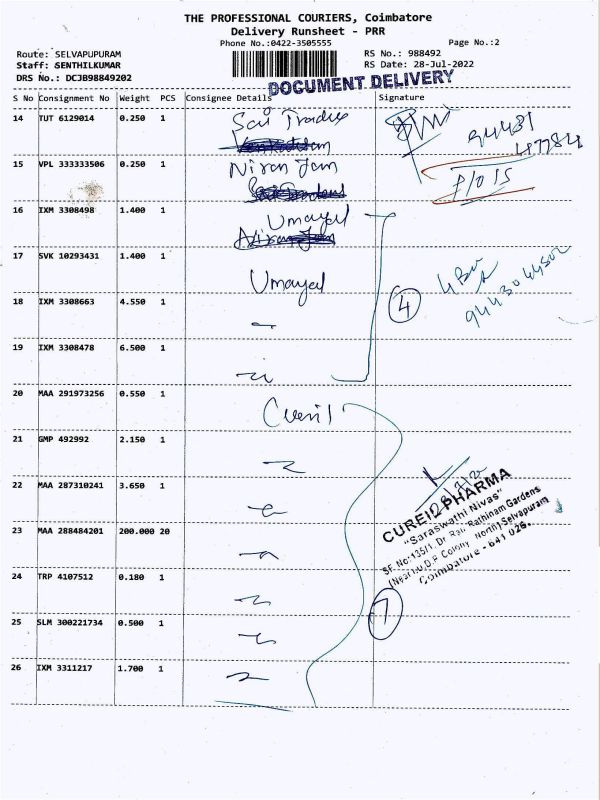 THE PROFESSIONAL COURIERS, Coimbatore
Delivery Runsheet - PRR
Phone No.:0422-3505555
Page No.:2
Route: SELVAPUPURAM
RS No.: 988492
Staff: SENTHILKUMAR
RS Date: 28-Jul-2022
DRS No.: DCJB98849202
DOCUMENT DELIVERY
S No Consignment No Weight PCS Consignee Details Signature
14 TUT 6129014 0.250 1 Sai Tradex
94431
47784
15 VPL 333333506 0.250 1 Niran Jam
P/015
16 IXM 3308498 1.400 1 Umayal
17 SVK 10293431 1.400 1 Umayal
4 Box
9443044502
18 IXM 3308663 4.550 1
4
19 IXM 3308478 6.500 1
20 MAA 291973256 0.550 1
21 GMP 492992 2.150 1
22 MAA 287310241 3.650 1
CUREIL PHARMA
"Saraswathi Nivas"
SF No:135/1, Dr. Rathinam Gardens
(Near H.U.D.F Colony North) Selvapuram
Coimbatore - 641 026.
23 MAA 288484201 200.000 20
24 TRP 4107512 0.180 1
7
25 SLM 300221734 0.500 1
26 IXM 3311217 1.700 1